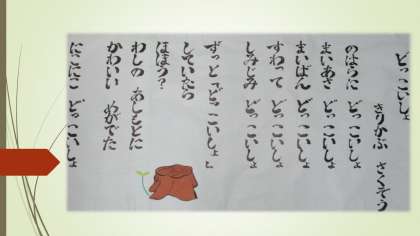 どっこいしょ
きりかぶ さくぞう
のはらに どっこいしょ
まいあさ どっこいしょ
まいばん どっこいしょ
すわって どっこいしょ
しみじみ どっこいしょ
ずっと「どっこいしょ」
していたら
ほほう?
わしの あしもとに
かわいい めがでた
にこにこ どっこいしょ